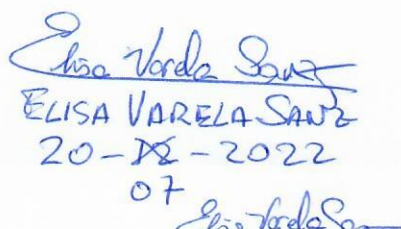 Elisa Varela Sanz
ELISA VARELA SANZ
20-12-2022
07
Elisa Varela San